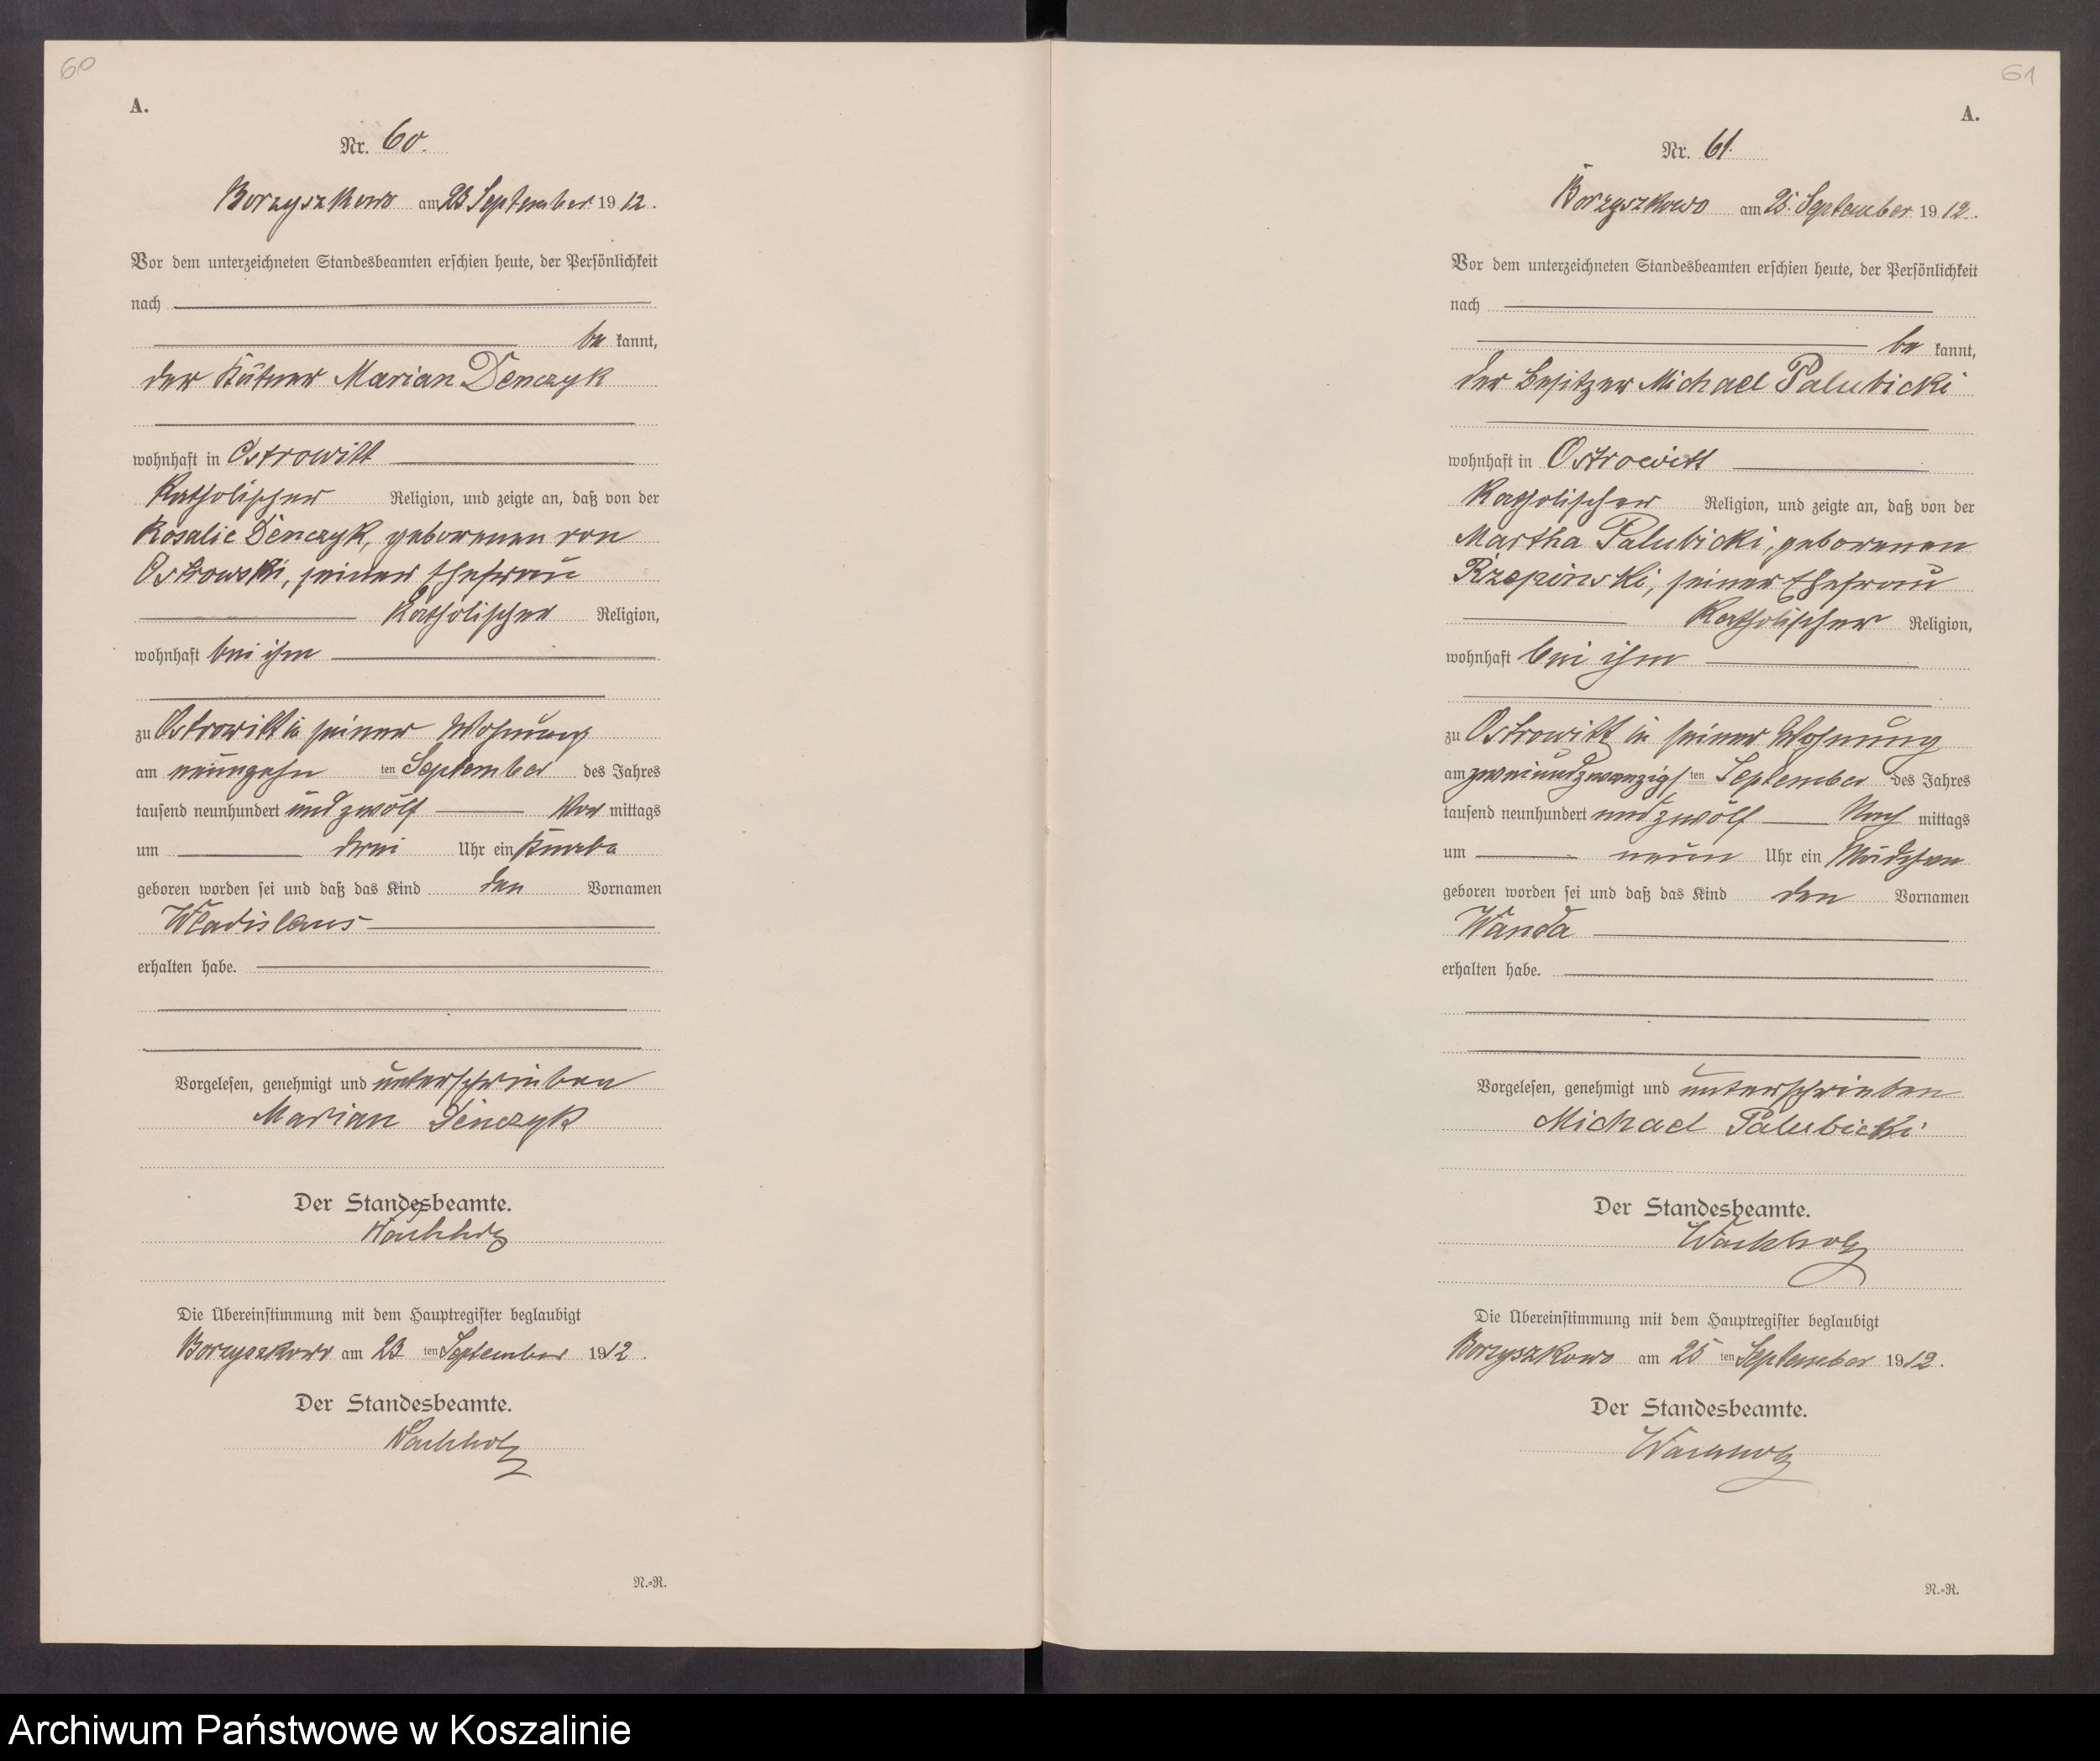 60
A.
Nr. 60.
Borzyszkowo am 23 September 1912.
Vor dem unterzeichneten Standesbeamten erschien heute, der Persönlichkeit
nach
be kannt,
der Kätner Marian Denczyk
wohnhaft in Ostrowitt
katholischer Religion, und zeigte an, daß von der
Rosalie Denczyk, geborenen von
Ostrowski, seiner Ehefrau
katholischer Religion,
wohnhaft bei ihm
zu Ostrowitt in seiner Wohnung
am neunzehn ten September des Jahres
tausend neunhundert und zwölf Vor mittags
um drei Uhr ein Knabe
geboren worden sei und daß das Kind den Vornamen
Wladislaus
erhalten habe.
Vorgelesen, genehmigt und unterschrieben
Marian Denczyk
Der Standesbeamte.
Wachholz
Die Übereinstimmung mit dem Hauptregister beglaubigt
Borzyszkowo am 23 ten September 1912.
Der Standesbeamte.
Wachholz
N.-R.
61
A.
Nr. 61.
Borzyszkowo am 25. September 1912.
Vor dem unterzeichneten Standesbeamten erschien heute, der Persönlichkeit
nach
be kannt,
der Besitzer Michael Palubicki
wohnhaft in Ostrowitt
katholischer Religion, und zeigte an, daß von der
Martha Palubicki, geborenen
Rzepinski, seiner Ehefrau
katholischer Religion,
wohnhaft bei ihm
zu Ostrowitt in seiner Wohnung
am zweiundzwanzigs ten September des Jahres
tausend neunhundert und zwölf Nach mittags
um neun Uhr ein Mädchen
geboren worden sei und daß das Kind den Vornamen
Wanda
erhalten habe.
Vorgelesen, genehmigt und unterschrieben
Michael Palubicki
Der Standesbeamte.
Wachholz
Die Übereinstimmung mit dem Hauptregister beglaubigt
Borzyszkowo am 25 ten September 1912.
Der Standesbeamte.
Wachholz
N.-R.
Archiwum Państwowe w Koszalinie